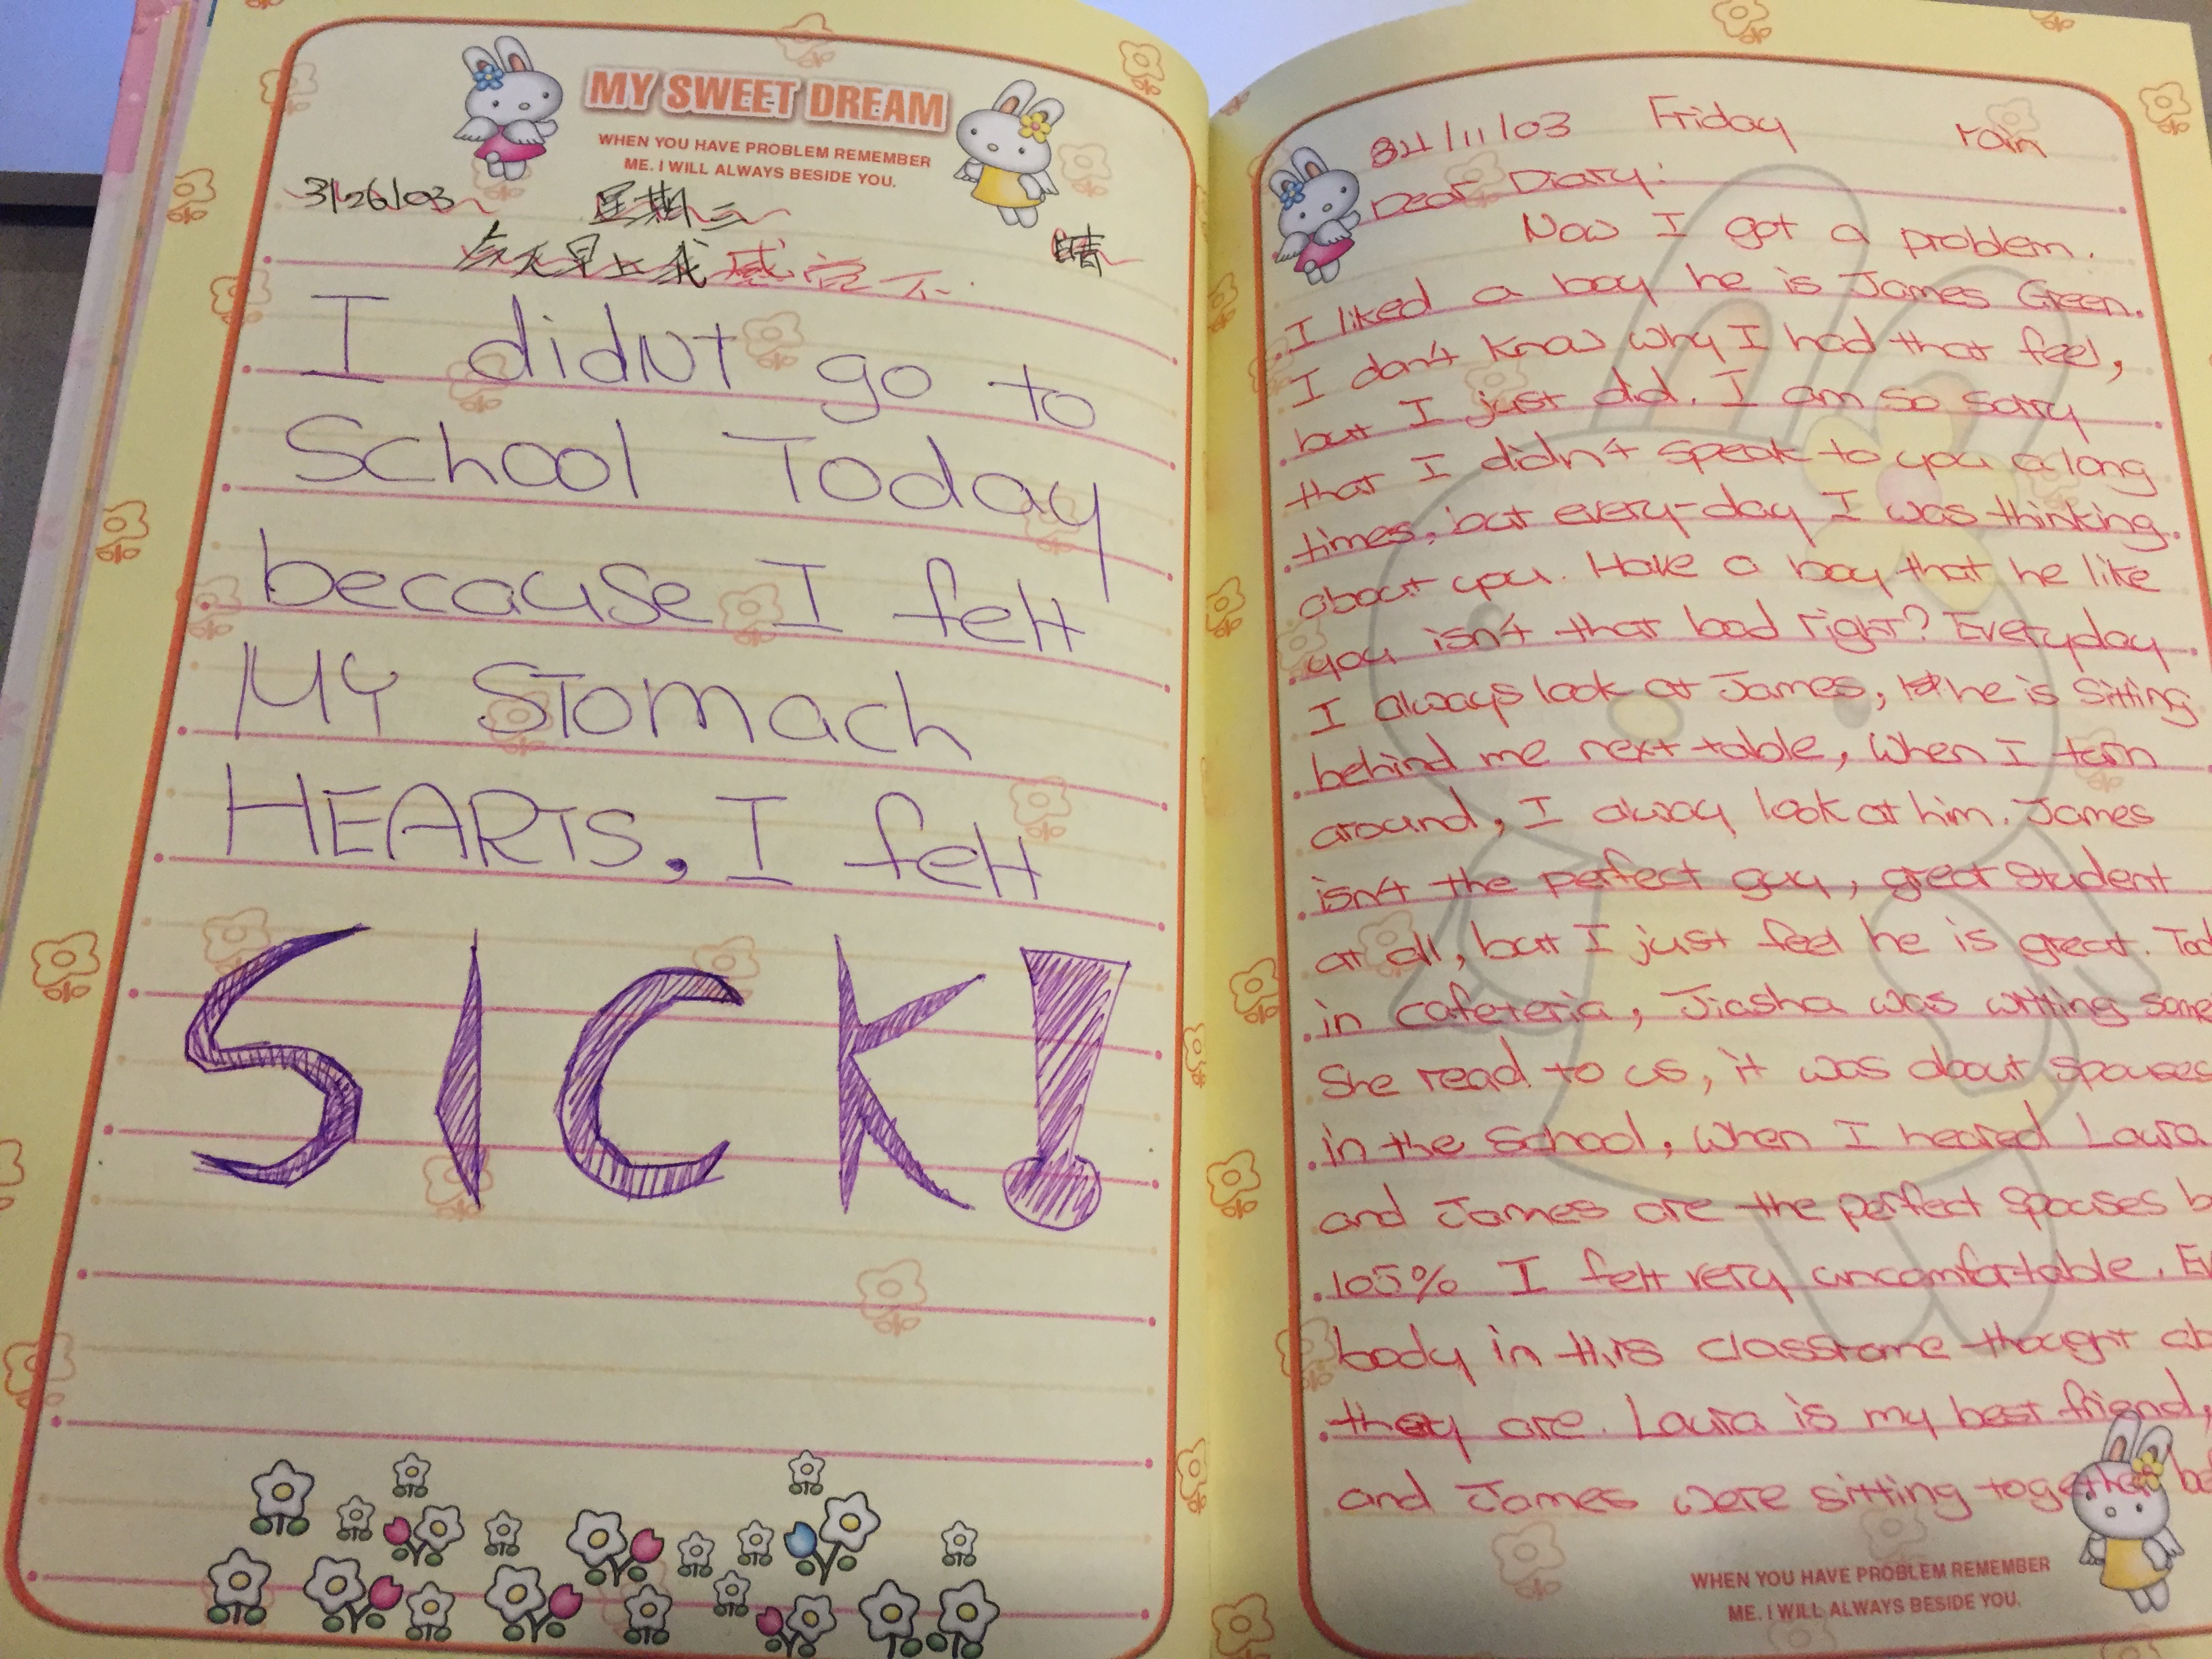 MY SWEET DREAM
WHEN YOU HAVE PROBLEM REMEMBER
ME. I WILL ALWAYS BESIDE YOU.
3/26/03 星期三
晴
今天早上我感觉不
I didNT go to
School Today
because I felt
MY STomach
HEARTS, I felt
SICK!
/11/03 Friday rain
Dear Diary:
Now I got a problem.
I liked a boy he is James Green.
I don't know why I had that feel,
but I just did. I am so sorry
that I didn't speak to you a long
times, but every-day I was thinking
about you. Have a boy that he like
you isn't that bad right? Everyday
I always look at James, he is sitting
behind me next table, When I tern
around, I alway look at him. James
isn't the perfect guy, great student
at all, but I just feel he is great. Tod
in cafeteria, Jiasha was writing some
She read to us, it was about spouses
in the School, When I heared Laura
and James are the perfect spouses b
105% I felt very uncomfortable. Ev
body in this classrome thought ab
they are. Laura is my best friend,
and James were sitting together be
WHEN YOU HAVE PROBLEM REMEMBER
ME. I WILL ALWAYS BESIDE YOU.